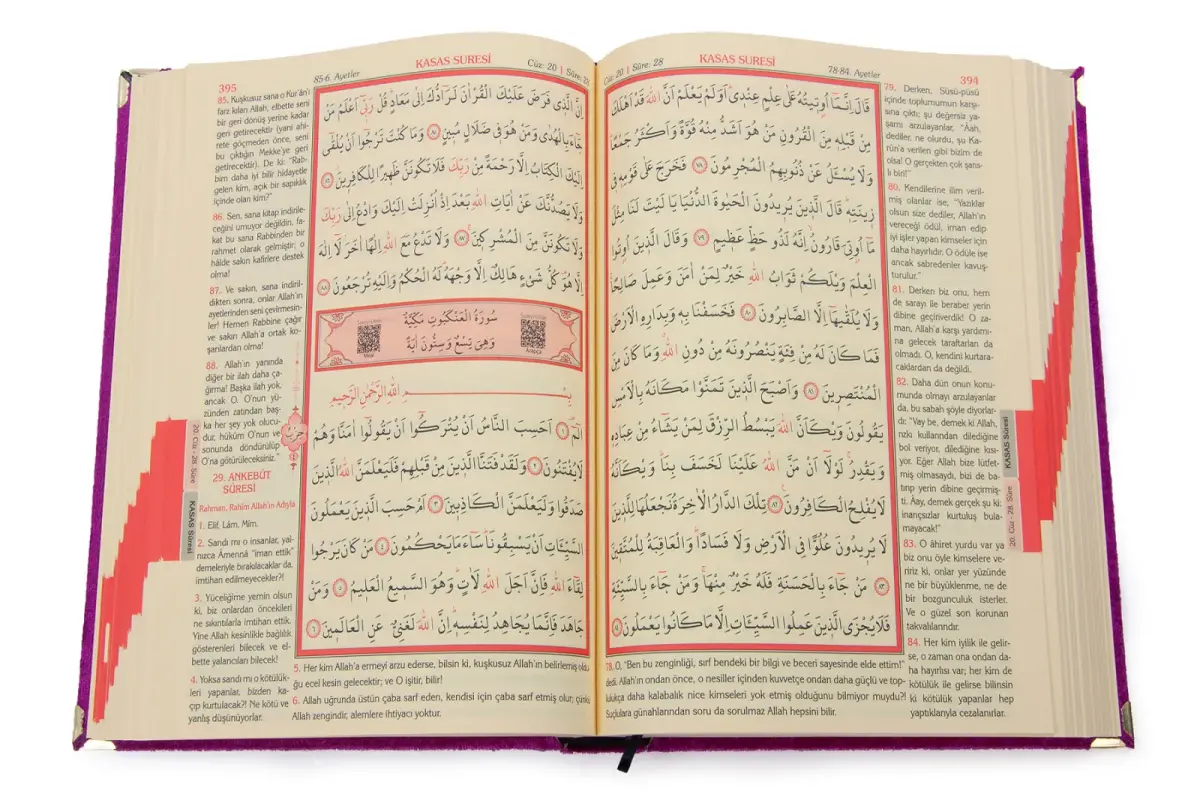 Cüz: 20 | Sûre: 28
KASAS SURESİ
78-84. Ayetler
394
قَالَ اِنَّمَٓا اُو۫ت۪يتُهُ عَلٰى عِلْمٍ عِنْد۪ي اَوَلَمْ يَعْلَمْ اَنَّ اللّٰهَ قَدْ اَهْلَكَ
مِنْ قَبْلِه۪ مِنَ الْقُرُونِ مَنْ هُوَ اَشَدُّ مِنْهُ قُوَّةً وَاَكْثَرُ جَمْعًا
وَلَا يُسْـَٔلُ عَنْ ذُنُوبِهِمُ الْمُجْرِمُونَ ٧٨ فَخَرَجَ عَلٰى قَوْمِه۪ ف۪ي
ز۪ينَتِه۪ قَالَ الَّذ۪ينَ يُر۪يدُونَ الْحَيٰوةَ الدُّنْيَا يَا لَيْتَ لَنَا مِثْلَ
مَٓا اُو۫تِيَ قَارُونُ اِنَّهُ لَذُو حَظٍّ عَظ۪يمٍ ٧٩ وَقَالَ الَّذ۪ينَ اُو۫تُوا
الْعِلْمَ وَيْلَكُمْ ثَوَابُ اللّٰهِ خَيْرٌ لِمَنْ اٰمَنَ وَعَمِلَ صَالِحًا
وَلَا يُلَقّٰيهَٓا اِلَّا الصَّابِرُونَ ٨٠ فَخَسَفْنَا بِه۪ وَبِدَارِهِ الْاَرْضَ
فَمَا كَانَ لَهُ مِنْ فِئَةٍ يَنْصُرُونَهُ مِنْ دُونِ اللّٰهِ وَمَا كَانَ مِنَ
الْمُنْتَصِر۪ينَ ٨١ وَاَصْبَحَ الَّذ۪ينَ تَمَنَّوْا مَكَانَهُ بِالْاَمْسِ
يَقُولُونَ وَيْكَاَنَّ اللّٰهَ يَبْسُطُ الرِّزْقَ لِمَنْ يَشَٓاءُ مِنْ عِبَادِه۪
وَيَقْدِرُ لَوْلَٓا اَنْ مَنَّ اللّٰهُ عَلَيْنَا لَخَسَفَ بِنَا وَيْكَاَنَّهُ
لَا يُفْلِحُ الْكَافِرُونَ ٨٢ تِلْكَ الدَّارُ الْاٰخِرَةُ نَجْعَلُهَا لِلَّذ۪ينَ
لَا يُر۪يدُونَ عُلُوًّا فِي الْاَرْضِ وَلَا فَسَادًا وَالْعَاقِبَةُ لِلْمُتَّق۪ينَ
٨٣ مَنْ جَٓاءَ بِالْحَسَنَةِ فَلَهُ خَيْرٌ مِنْهَا وَمَنْ جَٓاءَ بِالسَّيِّئَةِ
فَلَا يُجْزَى الَّذ۪ينَ عَمِلُوا السَّيِّـَٔاتِ اِلَّا مَا كَانُوا يَعْمَلُونَ ٨٤
78. O, "Ben bu zenginliği, sırf bendeki bir bilgi ve beceri sayesinde elde ettim!"
dedi. Allah'ın ondan önce, o nesiller içinden kuvvetçe ondan daha güçlü ve top-
lulukça daha kalabalık nice kimseleri yok etmiş olduğunu bilmiyor muydu?!
Suçlulara günahlarından soru da sorulmaz Allah hepsini bilir.
79. Derken, Süsü-püsü
içinde toplumunun karşı-
sına çıktı; şu değersiz ya-
şamı arzulayanlar, "Âah,
dediler, ne olurdu, şu Ka-
rûn'a verilen gibi bizim de
olsa! O gerçekten çok şans-
lı biri!"
80. Kendilerine ilim veril-
miş olanlar ise, "Yazıklar
olsun size dediler, Allah'ın
vereceği ödül, iman edip
iyi işler yapan kimseler için
daha hayırlıdır. O ödüle ise
ancak sabredenler kavuş-
turulur."
81. Derken biz onu, hem
de sarayı ile beraber yerin
dibine geçiriverdik! O za-
man, Allah'a karşı yardımı-
na gelecek taraftarları da
olmadı. O, kendini kurtara-
caklardan da değildi.
82. Daha dün onun konu-
munda olmayı arzulayanlar
da, bu sabah şöyle diyorlar-
dı: "Vay be, demek ki Allah,
rızkı kullarından dilediğine
bol veriyor, dilediğine kısı-
yor. Eğer Allah bize lütfet-
miş olmasaydı, bizi de ba-
tırıp yerin dibine geçirmiş-
ti. Âay, demek gerçek şu ki:
inançsızlar kurtuluş bula-
mayacak!"
83. O âhiret yurdu var ya
biz onu öyle kimselere ve-
ririz ki, onlar yer yüzünde
ne bir büyüklenme, ne de
bir bozgunculuk isterler.
Ve o güzel son korunan
takvalılarındır.
84. Her kim iyilik ile gelir-
se, o zaman ona ondan da-
ha hayırlısı var; her kim de
kötülük ile gelirse bilinsin
ki kötülük yapanlar hep
yaptıklarıyla cezalanırlar.
KASAS Sûresi
20. Cüz - 28. Sûre
395
85-6. Ayetler
KASAS SURESİ
Cüz: 20 | Sûre: 28
اِنَّ الَّذ۪ي فَرَضَ عَلَيْكَ الْقُرْاٰنَ لَرَٓادُّكَ اِلٰى مَعَادٍ قُلْ رَبّ۪ٓي اَعْلَمُ مَنْ
جَٓاءَ بِالْهُدٰى وَمَنْ هُوَ ف۪ي ضَلَالٍ مُب۪ينٍ ٨٥ وَمَا كُنْتَ تَرْجُٓوا اَنْ يُلْقٰٓى
اِلَيْكَ الْكِتَابُ اِلَّا رَحْمَةً مِنْ رَبِّكَ فَلَا تَكُونَنَّ ظَه۪يرًا لِلْكَافِر۪ينَ ٨٦
وَلَا يَصُدُّنَّكَ عَنْ اٰيَاتِ اللّٰهِ بَعْدَ اِذْ اُنْزِلَتْ اِلَيْكَ وَادْعُ اِلٰى رَبِّكَ
وَلَا تَكُونَنَّ مِنَ الْمُشْرِك۪ينَ ٨٧ وَلَا تَدْعُ مَعَ اللّٰهِ اِلٰهًا اٰخَرَ لَٓا اِلٰهَ
اِلَّا هُوَ كُلُّ شَيْءٍ هَالِكٌ اِلَّا وَجْهَهُ لَهُ الْحُكْمُ وَاِلَيْهِ تُرْجَعُونَ ٨٨
سُورَةُ الْعَنْكَبُوتِ مَكِّيَّةٌ
وَهِيَ تِسْعٌ وَسِتُّونَ اٰيَةً
Meal
Arapça
بِسْمِ اللّٰهِ الرَّحْمٰنِ الرَّح۪يمِ
الٓمٓ ١ اَحَسِبَ النَّاسُ اَنْ يُتْرَكُٓوا اَنْ يَقُولُٓوا اٰمَنَّا وَهُمْ
لَا يُفْتَنُونَ ٢ وَلَقَدْ فَتَنَّا الَّذ۪ينَ مِنْ قَبْلِهِمْ فَلَيَعْلَمَنَّ اللّٰهُ الَّذ۪ينَ
صَدَقُوا وَلَيَعْلَمَنَّ الْكَاذِب۪ينَ ٣ اَمْ حَسِبَ الَّذ۪ينَ يَعْمَلُونَ
السَّيِّـَٔاتِ اَنْ يَسْبِقُونَا سَٓاءَ مَا يَحْكُمُونَ ٤ مَنْ كَانَ يَرْجُوا
لِقَٓاءَ اللّٰهِ فَاِنَّ اَجَلَ اللّٰهِ لَاٰتٍ وَهُوَ السَّم۪يعُ الْعَل۪يمُ ٥ وَمَنْ
جَاهَدَ فَاِنَّمَا يُجَاهِدُ لِنَفْسِه۪ اِنَّ اللّٰهَ لَغَنِيٌّ عَنِ الْعَالَم۪ينَ ٦
حزب
85. Kuşkusuz sana o Kur'ân'ı
farz kılan Allah, elbette seni
bir geri dönüş yerine kadar
geri getirecektir (yani ahi-
rete göçmeden önce, seni
bu çıktığın Mekke'ye geri
getirecektir). De ki: "Rab-
bim daha iyi bilir hidayetle
gelen kim, açık bir sapıklık
içinde olan kim?"
86. Sen, sana kitap indirile-
ceğini umuyor değildin, fa-
kat bu sana Rabbinden bir
rahmet olarak gelmiştir; o
hâlde sakın kafirlere destek
olma!
87. Ve sakın, sana indiril-
dikten sonra, onlar Allah'ın
ayetlerinden seni çevirmesin-
ler! Hemen Rabbine çağır
ve sakın Allah'a ortak ko-
şanlardan olma!
88. Allah'ın yanında
diğer bir ilah daha ça-
ğırma! Başka ilah yok,
ancak O. O'nun yü-
zünden zatından baş-
ka her şey yok olucu-
dur, hüküm O'nun ve
sonunda döndürülüp
O'na götürüleceksiniz."
29. ANKEBÛT
SÛRESİ
Rahman, Rahim Allah'ın Adıyla
1. Elif, Lâm, Mim.
2. Sandı mı o insanlar, yal-
nızca Âmennâ "iman ettik"
demeleriyle bırakılacaklar da,
imtihan edilmeyecekler?!
3. Yüceliğime yemin olsun
ki, biz onlardan öncekileri
ne sıkıntılarla imtihan ettik.
Yine Allah kesinlikle bağlılık
gösterenleri bilecek ve el-
bette yalancıları bilecek!
4. Yoksa sandı mı o kötülük-
leri yapanlar, bizden ka-
çıp kurtulacak?! Ne kötü ve
yanlış düşünüyorlar.
5. Her kim Allah'a ermeyi arzu ederse, bilsin ki, kuşkusuz Allah'ın belirlemiş oldu-
ğu ecel kesin gelecektir; ve O işitir, bilir!
6. Allah uğrunda üstün çaba sarf eden, kendisi için çaba sarf etmiş olur; çünkü
Allah zengindir, alemlere ihtiyacı yoktur.
20. Cüz - 28. Sûre
KASAS Sûresi